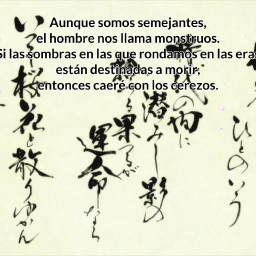 Aunque somos semejantes,
el hombre nos llama monstruos.
Si las sombras en las que rondamos en las eras
están destinadas a morir,
entonces caeré con los cerezos.
ひとのいう
潜みし影の
果つるが
運命なら
いざ桜花と散りゆかん